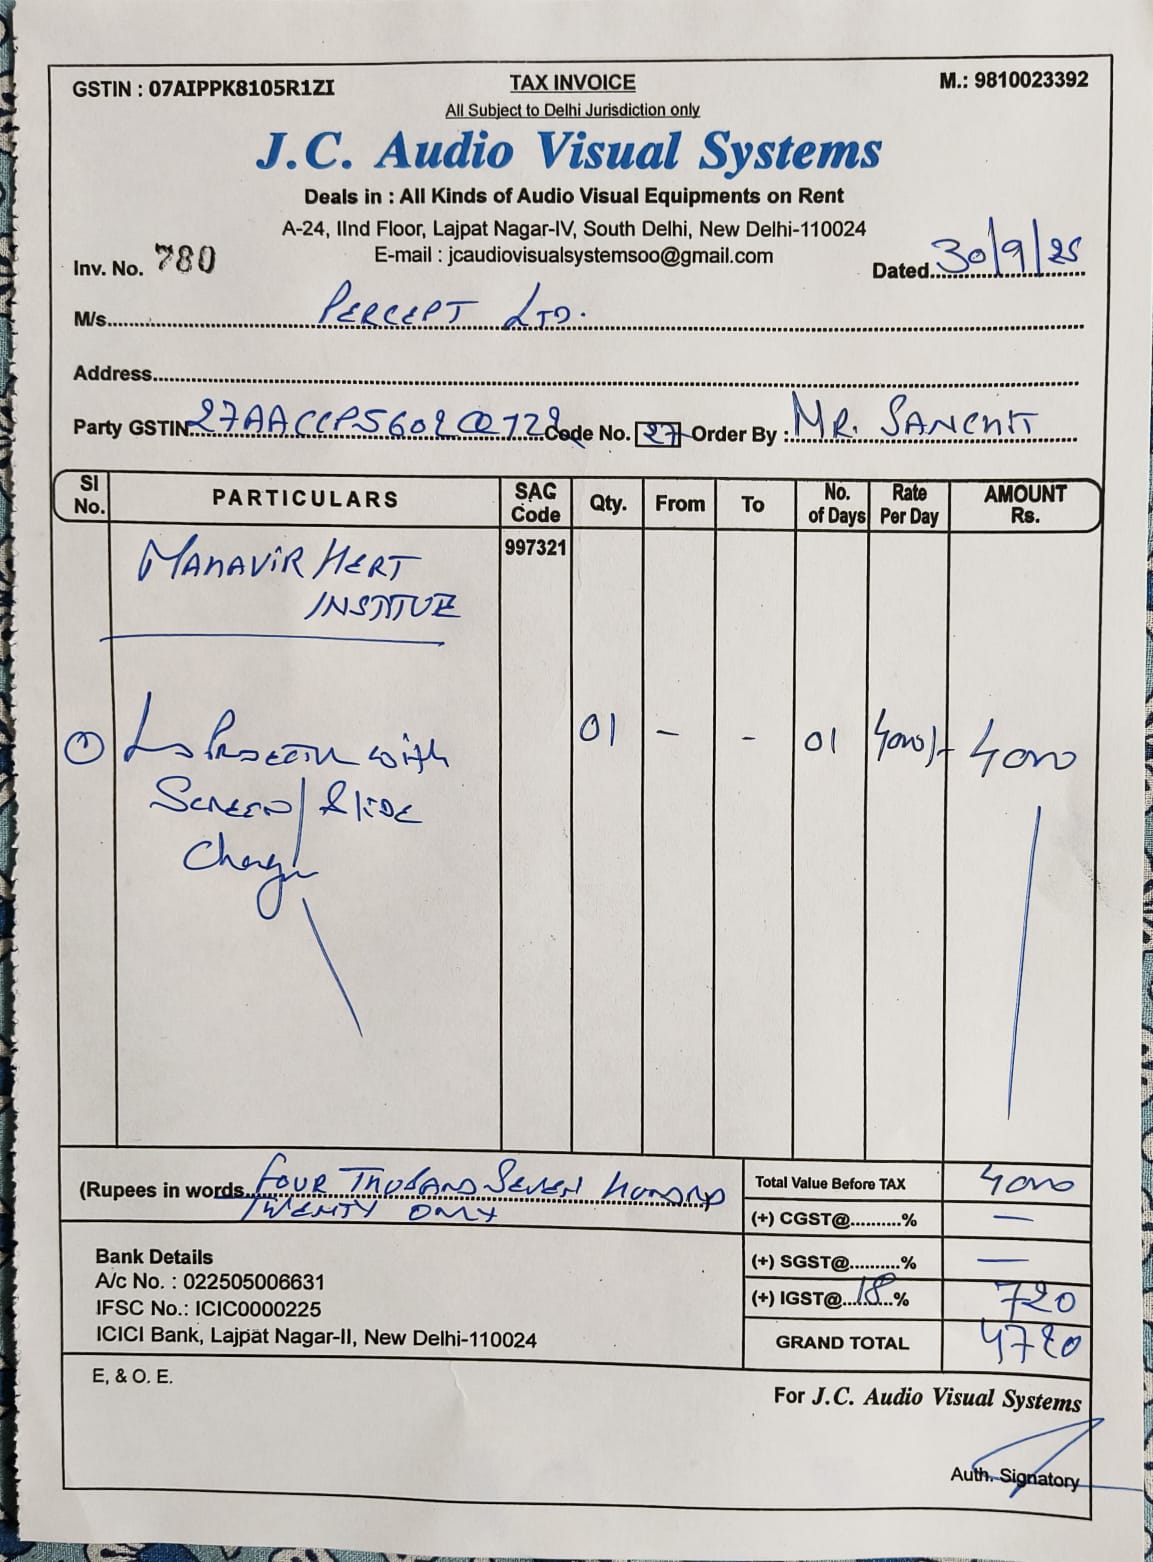 GSTIN : 07AIPPK8105R1ZI
TAX INVOICE
M.: 9810023392
All Subject to Delhi Jurisdiction only
J.C. Audio Visual Systems
Deals in : All Kinds of Audio Visual Equipments on Rent
A-24, IInd Floor, Lajpat Nagar-IV, South Delhi, New Delhi-110024
E-mail : jcaudiovisualsystemsoo@gmail.com
Inv. No. 780
Dated 30/9/25
M/s. PERCEPT LTD.
Address
Party GSTIN Code No. 27 Order By : MR. SANCHIT
Sl No. PARTICULARS SAC Code Qty. From To No. of Days Rate Per Day AMOUNT Rs.
997321
INSTITUE
① with 01 - - 01 4000/- 4000
SCREEN/ SLIDE
(Rupees in words FOUR THOUSAND SEVEN
TWENTY ONLY
Total Value Before TAX 4000
(+) CGST@..........% —
(+) SGST@..........% —
(+) IGST@ 18 % 720
GRAND TOTAL 4720
Bank Details
A/c No. : 022505006631
IFSC No.: ICIC0000225
ICICI Bank, Lajpat Nagar-II, New Delhi-110024
E, & O. E.
For J.C. Audio Visual Systems
Auth. Signatory